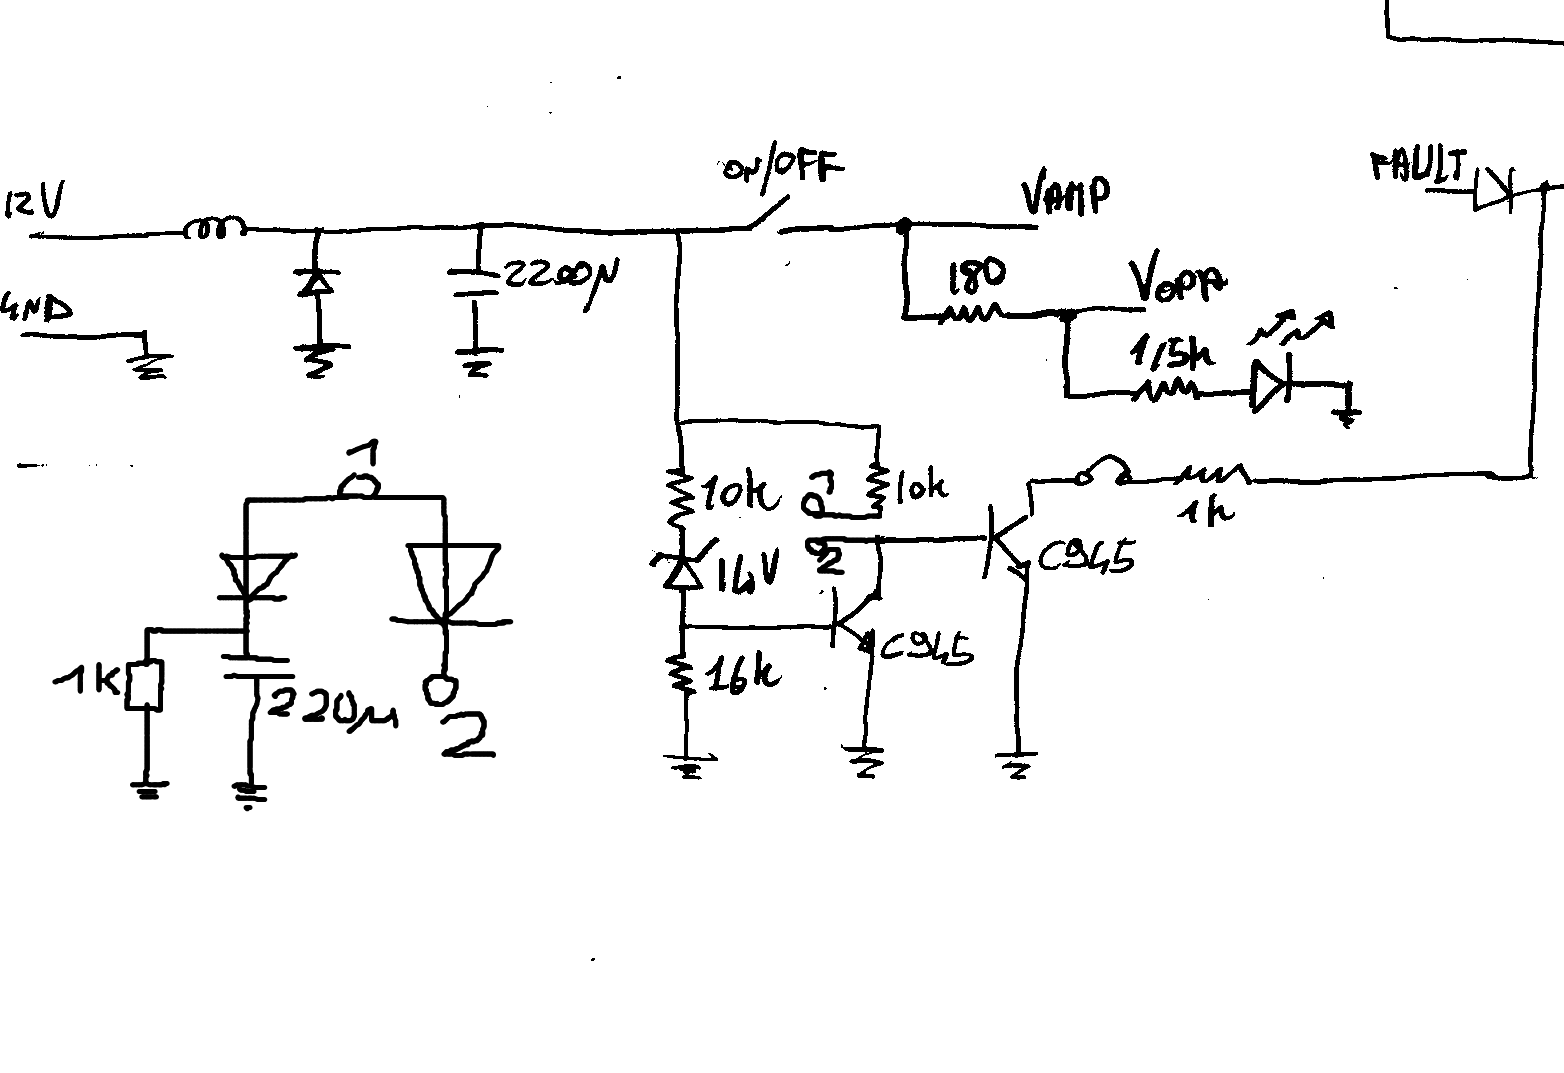 ON/OFF
FAULT
12V
VAMP
GND
2200µ
180
VOPA
1,5k
1
10k
1
10k
1k
16V
2
C945
C945
1K
16k
220µ
2